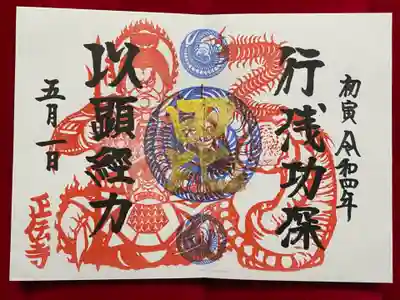 初寅 令和四年
行浅功深
以顕經力
五月一日
正伝寺